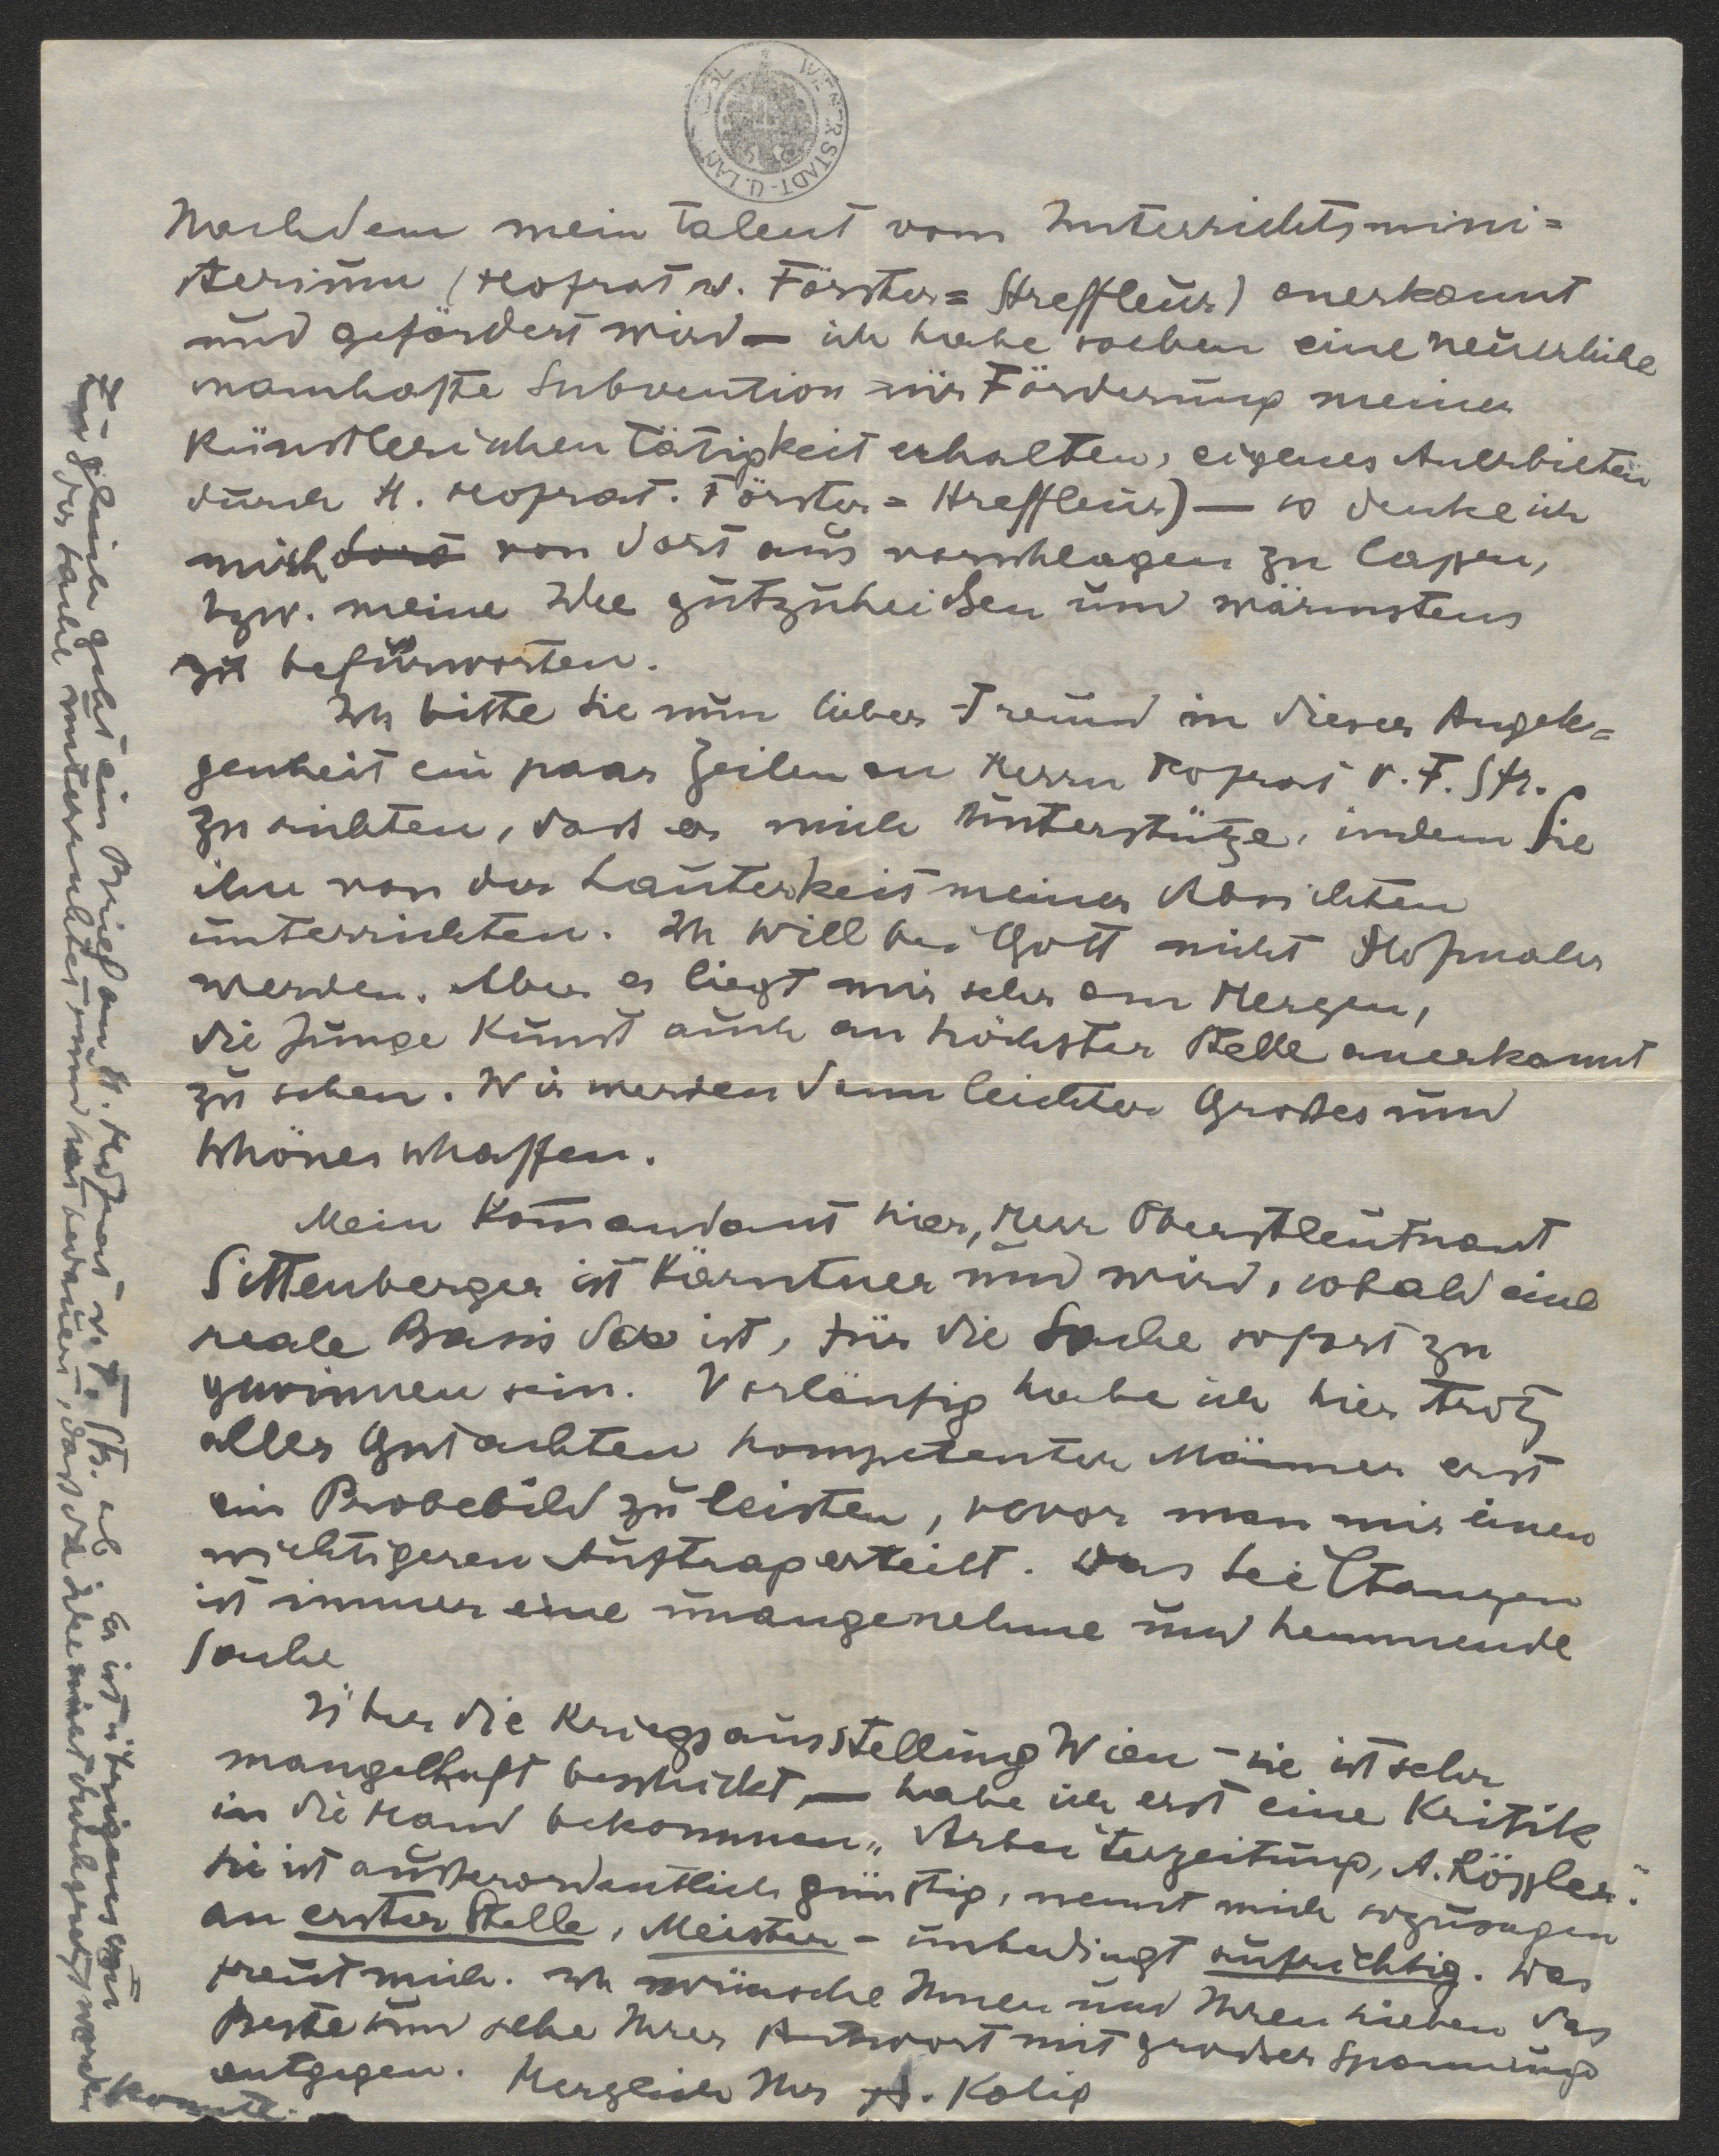 WIENER STADT- U. LAN
Nachdem mein Talent vom Unterrichtsmini=
sterium (Hofrat v. Förster=Streffleur) anerkannt
und gefördert wird — ich habe soeben eine neuerliche
namhafte Subvention zur Förderung meiner
künstlerischen Tätigkeit erhalten, eigenes Anerbieten
durch H. Hofrat. Förster=Streffleur) — so denke ich
mich dort von dort aus vorschlagen zu lassen,
bzw. meine Idee gutzuheißen und wärmstens
zu befürworten.
Ich bitte Sie nun lieber Freund in dieser Angele=
genheit ein paar Zeilen an Herrn Hofrat v. F. Str.
zu richten, dass er mich unterstütze, indem Sie
ihn von der Lauterkeit meiner Absichten
unterrichten. Ich will bei Gott nicht Hofmaler
werden. Aber es liegt mir sehr am Herzen,
die Junge Kunst auch an höchster Stelle anerkannt
zu sehen. Wir werden dann leichter Großes und
Schönes schaffen.
Mein Komandant hier, Herr Oberstleutnant
Sittenberger ist Kärntner und wird, sobald eine
reale Basis da ist, für die Sache sofort zu
gewinnen sein. Vorläufig habe ich hier trotz
aller Gutachten kompetenter Männer erst
ein Probebild zu leisten, bevor man mir einen
wichtigeren Auftrag erteilt. Das
ist immer eine unangenehme und hemmende
Sache
Über die Kriegsausstellung Wien – sie ist sehr
mangelhaft beschickt, — habe ich erst eine Kritik
in die Hand bekommen „Arbeiterzeitung, A. Rössler".
Sie ist außerordentlich günstig, nennt mich sozusagen
an erster Stelle, Meister – unbedingt aufrichtig. Das
freut mich. Ich wünsche Ihnen und Ihren Lieben das
Beste und sehe Ihrer Antwort mit großer Spannung
entgegen. Herzlich Ihr A. Kolig
Zugleich geht ein Brief an H. Hofrat v. F. Str. ab Er ist übrigens von
der Sache unterrichtet und hat bedauert, dass die Idee nicht durchgesetzt werden
konnte.